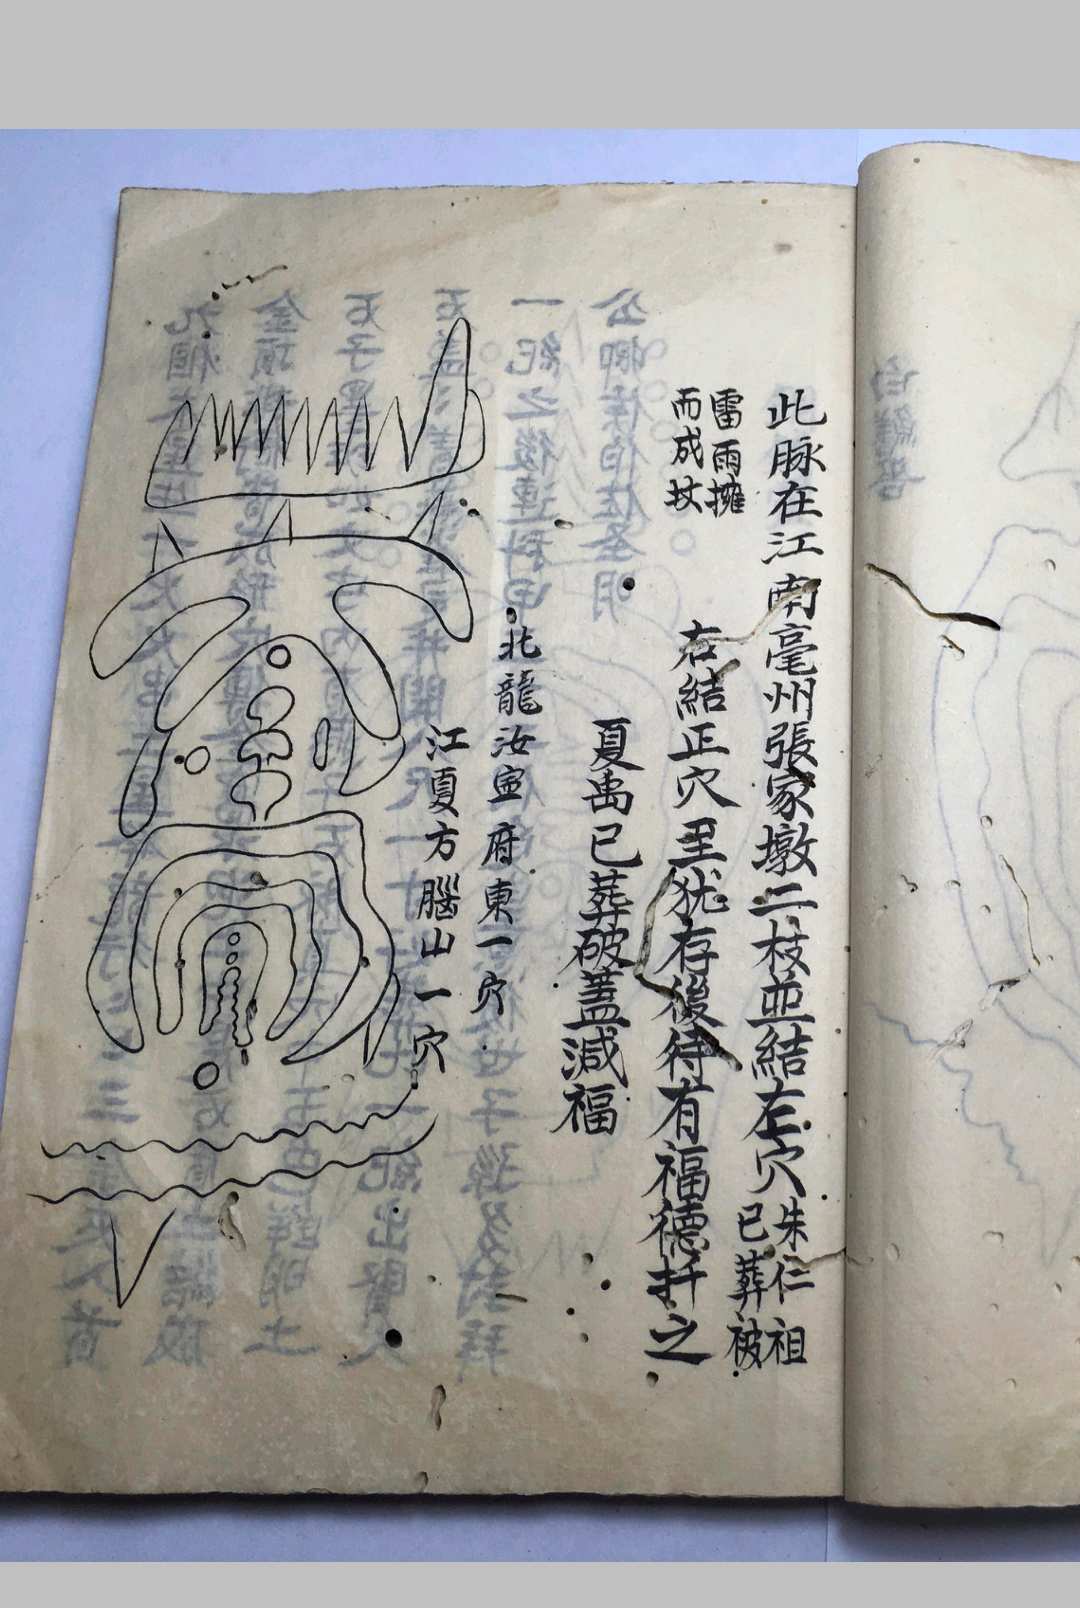 此脉在江南毫州張家墩二枝並結左穴
朱仁祖
已葬被
雷雨擁
而成坟
右結正穴里犹存後待有福德扦之
夏禹已葬破蓋減福
北龍汝寍府東一穴
江夏方腦山一穴